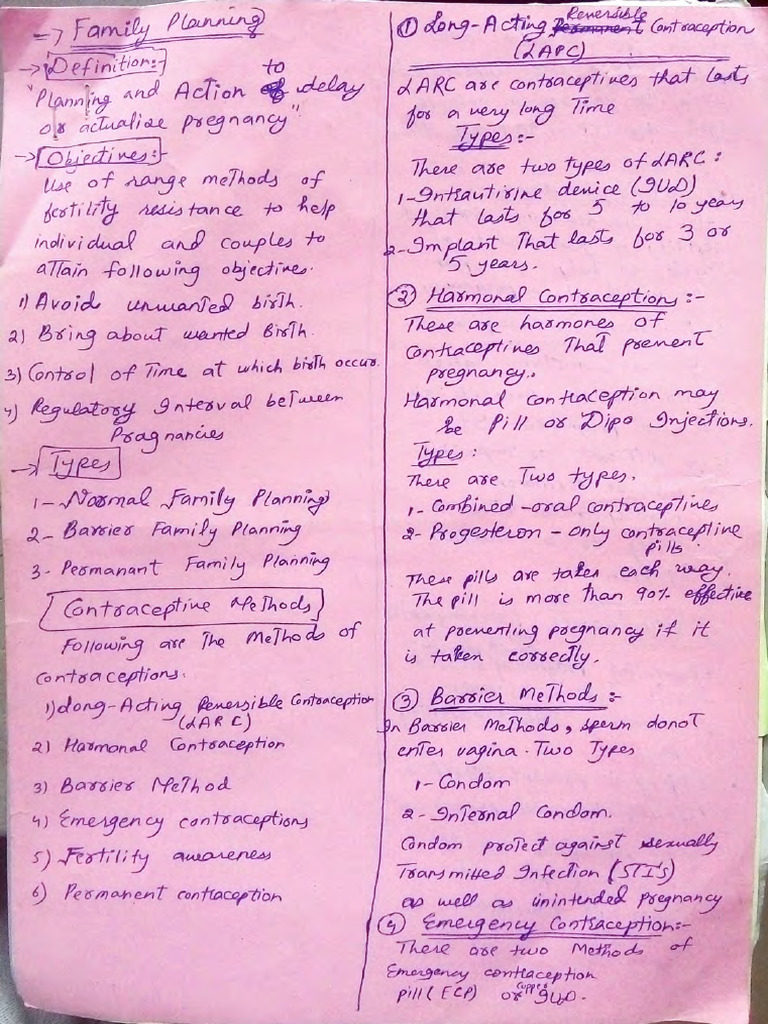 → Family Planning
→ Definition:-
"Planning and Action to delay
or actualize pregnancy"
→ Objectives:-
Use of range methods of
fertility resistance to help
individual and couples to
attain following objectives.
1) Avoid unwanted birth.
2) Bring about wanted Birth.
3) Control of Time at which birth occur.
4) Regulatory Interval between
Pragnancies
→ Types
1- Normal Family Planning
2- Barrier Family Planning
3- Permanant Family Planning
Contraceptive Methods
Following are The Methods of
contraceptions:
1) Long-Acting Reversible Contraception
(LARC)
2) Harmonal Contraception
3) Barrier Method
4) Emergency contraceptions
5) Fertility awareness
6) Permanent contraception
① Long-Acting Reversible Contraception
(LAPC)
LARC are contraceptives that lasts
for a very long Time
Types:-
There are two types of LARC:
1- Intrautirine device (IUD)
that lasts for 5 to 10 years
2- Implant That lasts for 3 or
5 years.
② Harmonal Contraception:-
These are harmones of
Contraceptives That prevent
pregnancy.
Harmonal contraception may
be Pill or Dipo Injections.
Types:
There are Two types.
1- Combined -oral contraceptives
2- Progesteron - only contraceptive
pills
These pills are taken each way.
The pill is more than 90% effective
at preventing pregnancy if it
is taken correctly.
③ Barrier Methods:-
In Barrier Methods, sperm donot
enter vagina. Two Types
1- Condom
2- Internal Condom.
Condom protect against sexually
Transmitted Infection (STI's)
as well as unintended Pregnancy
④ Emergency Contraception:-
There are two Methods of
Emergency contraception
pill (ECP) or Copper IUD.